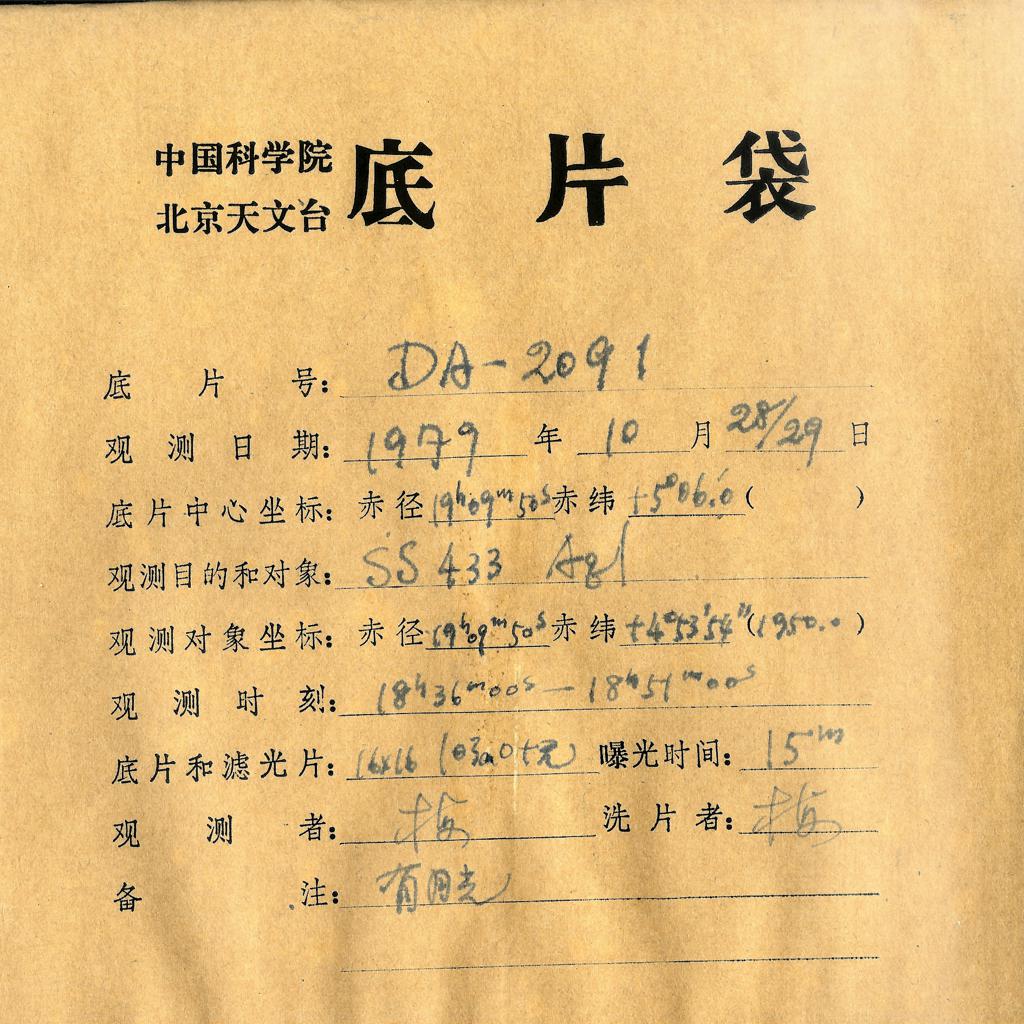 中国科学院
北京天文台
底片袋
底片号: DA-2091
观测日期: 1979年10月28/29日
底片中心坐标: 赤径19ʰ09ᵐ50ˢ赤纬+5°06.′0( )
观测目的和对象: SS 433 Aql
观测对象坐标: 赤径19ʰ09ᵐ50ˢ赤纬+4°53′54″(1950.0)
观测时刻: 18ʰ36ᵐ00ˢ—18ʰ51ᵐ00ˢ
底片和滤光片: 16x16 103aO+无 曝光时间: 15ᵐ
观测者: 梅 洗片者: 梅
备注: 有月光